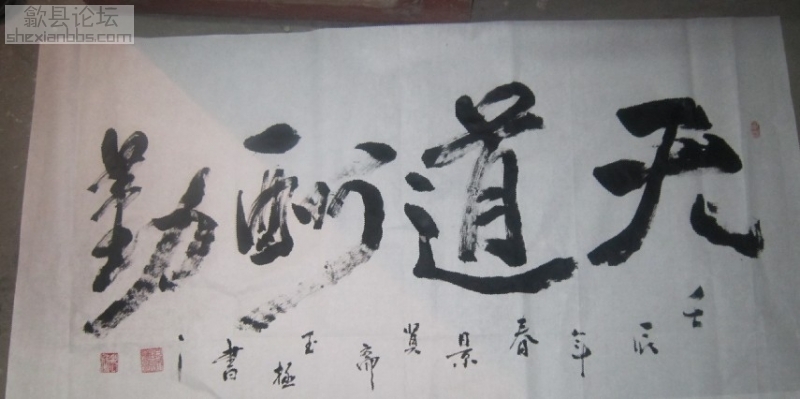 歙县论坛
shexianbbs.com
天道酬勤
壬辰年春景贤斋玉極書